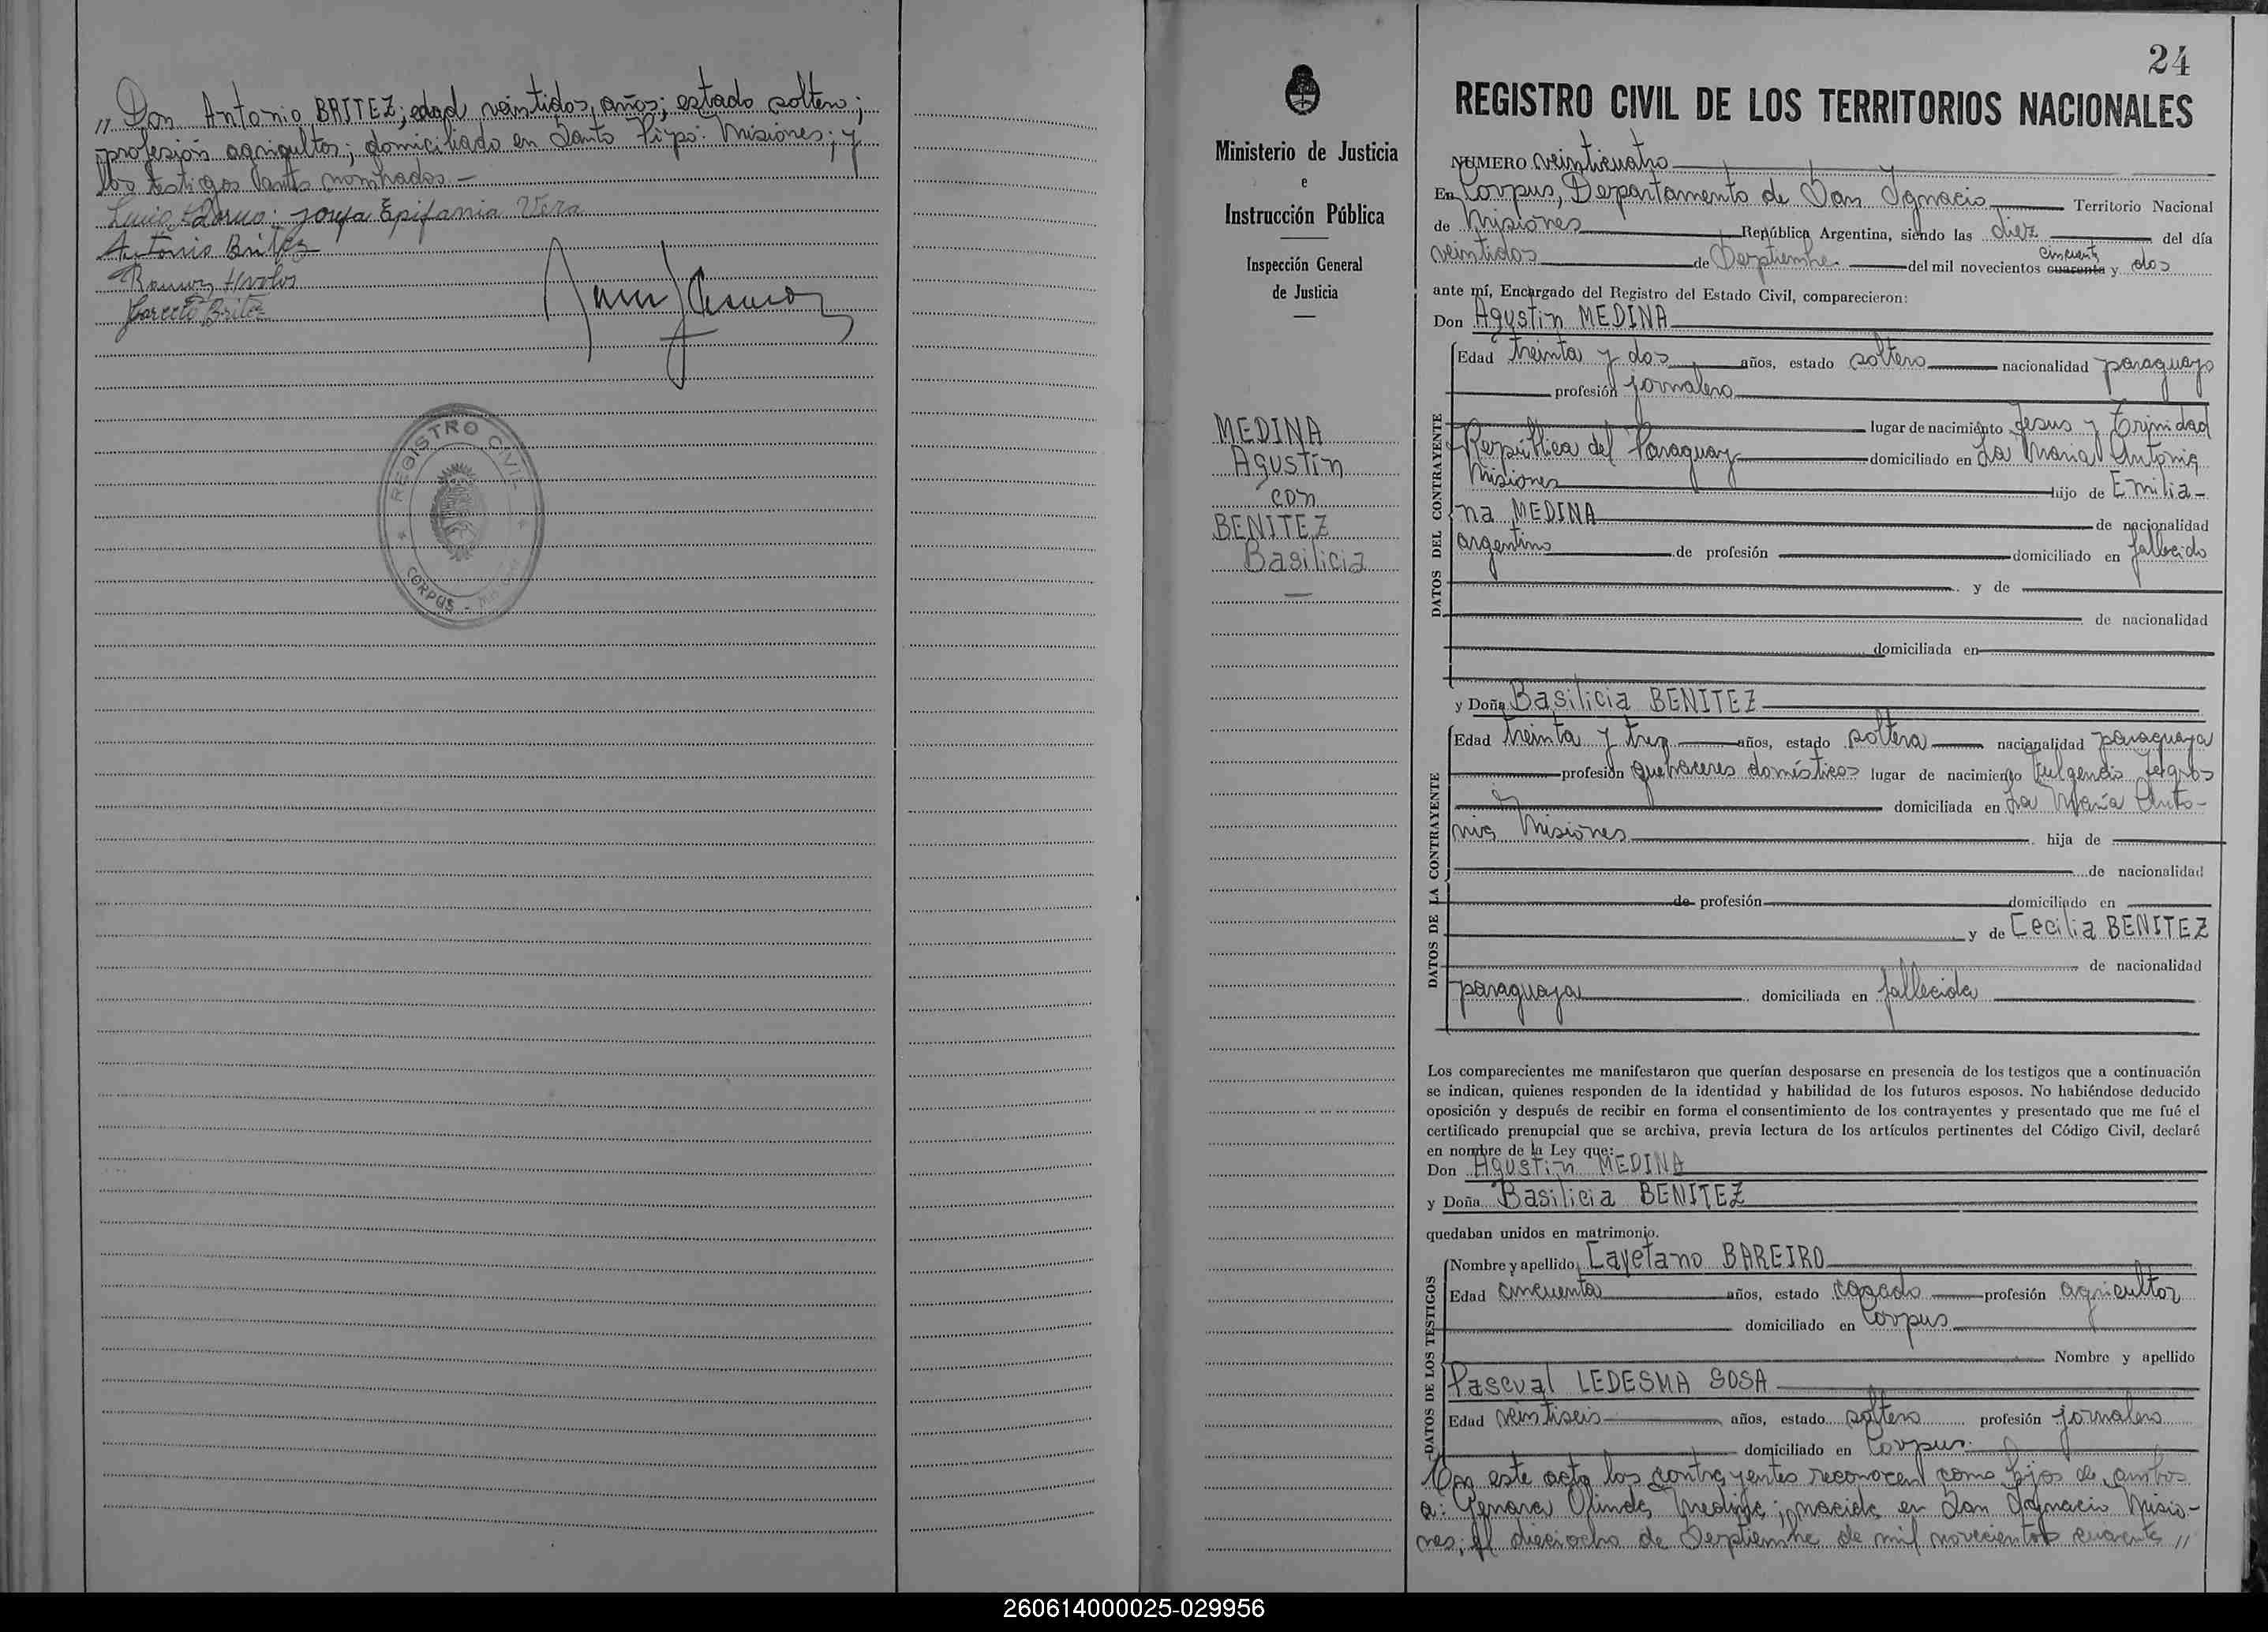 „ Don Antonio BRITEZ; edad veintidos años; estado soltero;
profesión agricultor; domiciliado en Santo Pipó: Misiones; y
los testigos antes nombrados.—
Josefa Epifania Vera
Antonio Britez
Britez
REGISTRO CIVIL
CORPUS -
24
Ministerio de Justicia
e
Instrucción Pública
Inspección General
de Justicia
MEDINA
Agustin
con
BENITEZ
Basilicia
REGISTRO CIVIL DE LOS TERRITORIOS NACIONALES
NUMERO veinticuatro
En Corpus, Departamento de San Ignacio Territorio Nacional
de Misiones República Argentina, siendo las diez del día
veintidos de Septiembre del mil novecientos cuarenta cincuenta y dos
ante mí, Encargado del Registro del Estado Civil, comparecieron:
Don Agustin MEDINA
Edad treinta y dos años, estado soltero nacionalidad paraguayo
profesión jornalero
lugar de nacimiento Jesus y Trinidad
República del Paraguay domiciliado en La Maria Antonia
Misiones hijo de Emilia-
na MEDINA de nacionalidad
argentino de profesión domiciliado en fallecido
y de
de nacionalidad
domiciliada en
DATOS DEL CONTRAYENTE
y Doña Basilicia BENITEZ
Edad treinta y tres años, estado soltera nacionalidad paraguaya
profesión quehaceres domésticos lugar de nacimiento Fulgencio Yegros
domiciliada en La María Anto-
nia Misiones hija de
de nacionalidad
de profesión domiciliado en
y de Cecilia BENITEZ
de nacionalidad
paraguaya domiciliada en fallecida
DATOS DE LA CONTRAYENTE
Los comparecientes me manifestaron que querían desposarse en presencia de los testigos que a continuación
se indican, quienes responden de la identidad y habilidad de los futuros esposos. No habiéndose deducido
oposición y después de recibir en forma el consentimiento de los contrayentes y presentado que me fué el
certificado prenupcial que se archiva, previa lectura de los artículos pertinentes del Código Civil, declaré
en nombre de la Ley que:
Don Agustin MEDINA
y Doña Basilicia BENITEZ
quedaban unidos en matrimonio.
Nombre y apellido Cayetano BAREIRO
Edad cincuenta años, estado casado profesión agricultor
domiciliado en Corpus
Nombre y apellido
Pascual LEDESMA SOSA
Edad veintiseis años, estado soltero profesión jornalero
domiciliado en Corpus.
DATOS DE LOS TESTIGOS
En este acto los contrayentes reconocen como hijos de ambos
a: Genara Olinda Medina; nacida en San Ignacio Misio-
nes; el dieciocho de Septiembre de mil novecientos cuarenta „
260614000025-029956